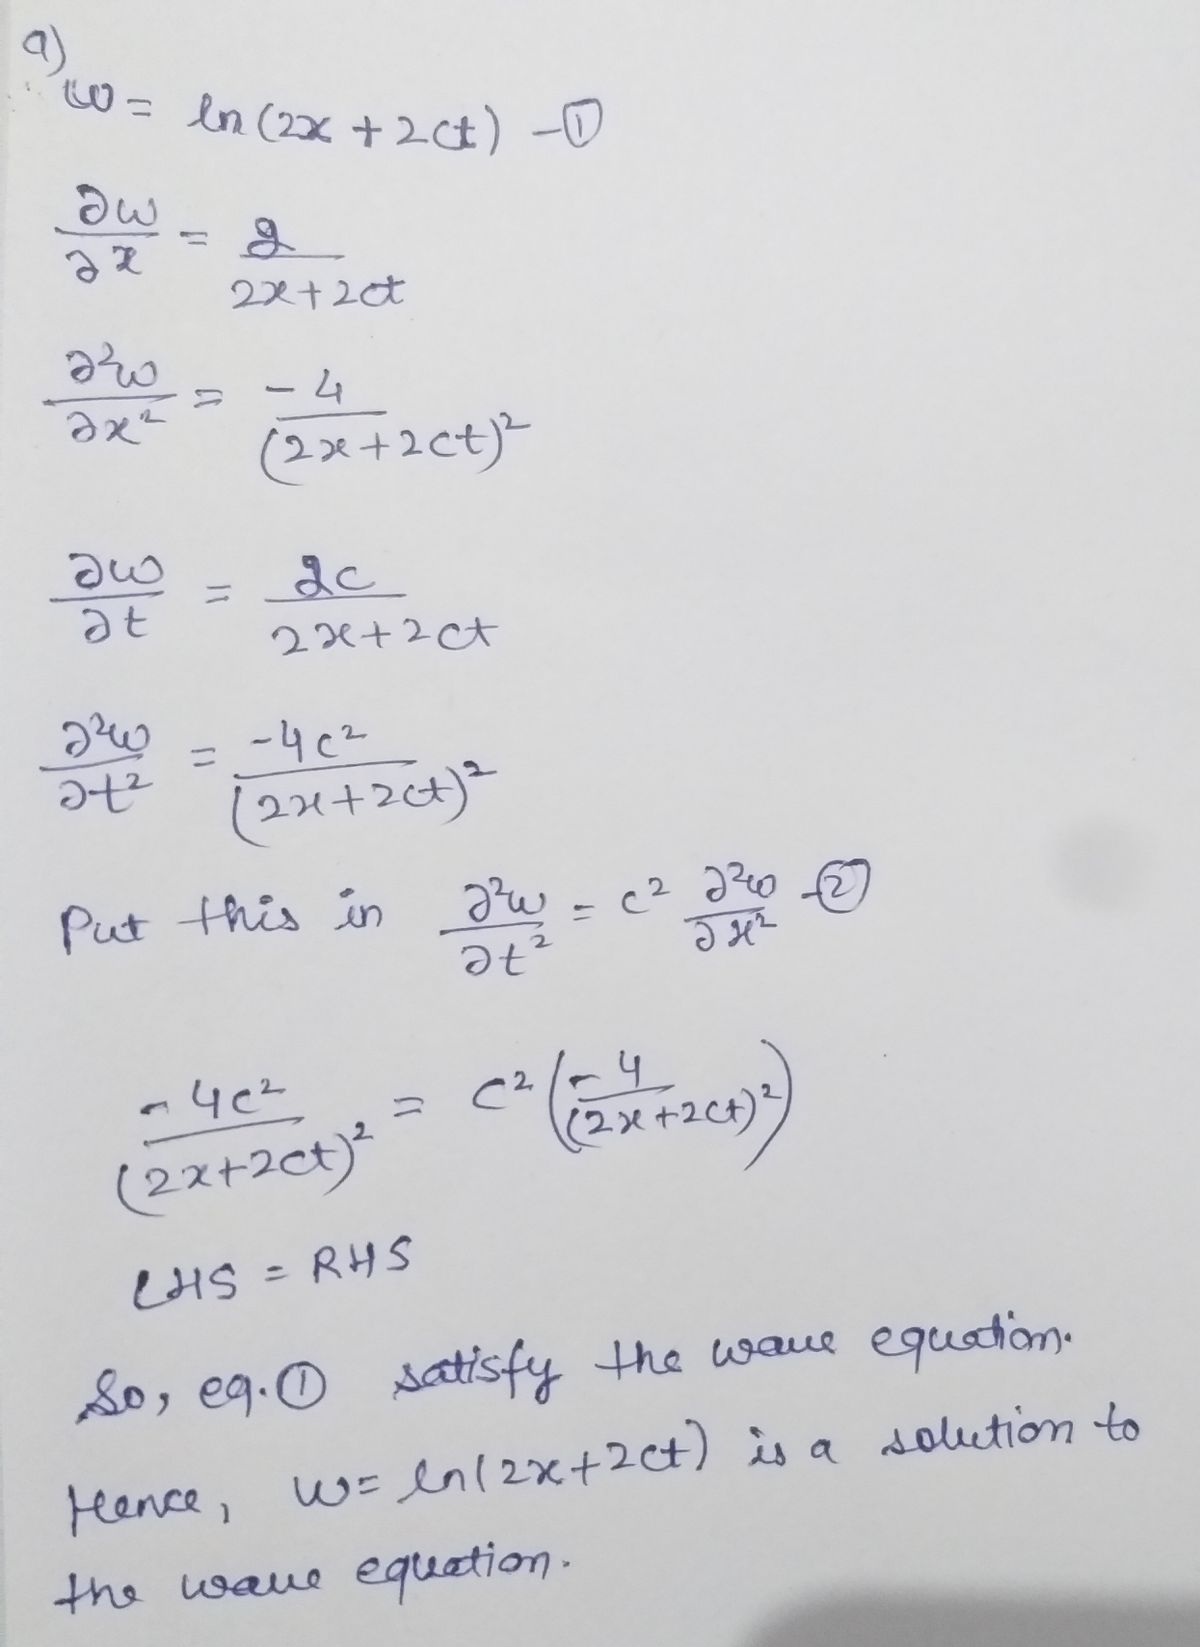 a)
w = ln(2x + 2ct) -①
∂w/∂x = 2/(2x+2ct)
∂²w/∂x² = -4/(2x+2ct)²
∂w/∂t = 2c/(2x+2ct)
∂²w/∂t² = -4c²/(2x+2ct)²
Put this in ∂²w/∂t² = c² ∂²w/∂x² -②
-4c²/(2x+2ct)² = c² (-4/(2x+2ct)²)
LHS = RHS
So, eq.① satisfy the wave equation.
Hence, w= ln(2x+2ct) is a solution to
the wave equation.